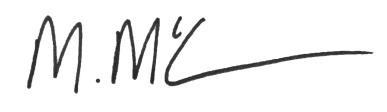 M. Mc